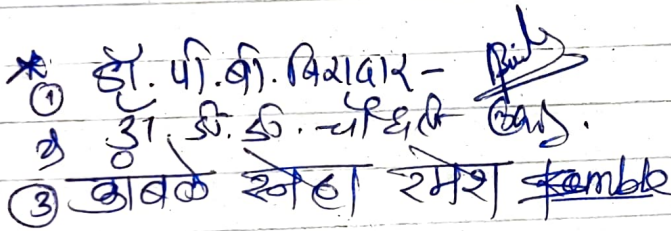 * ① डॉ. पी. बी. बिरादार -
२) डॉ. डी. डी. चौधरी
③ कांबळे स्नेहा रमेश Kamble